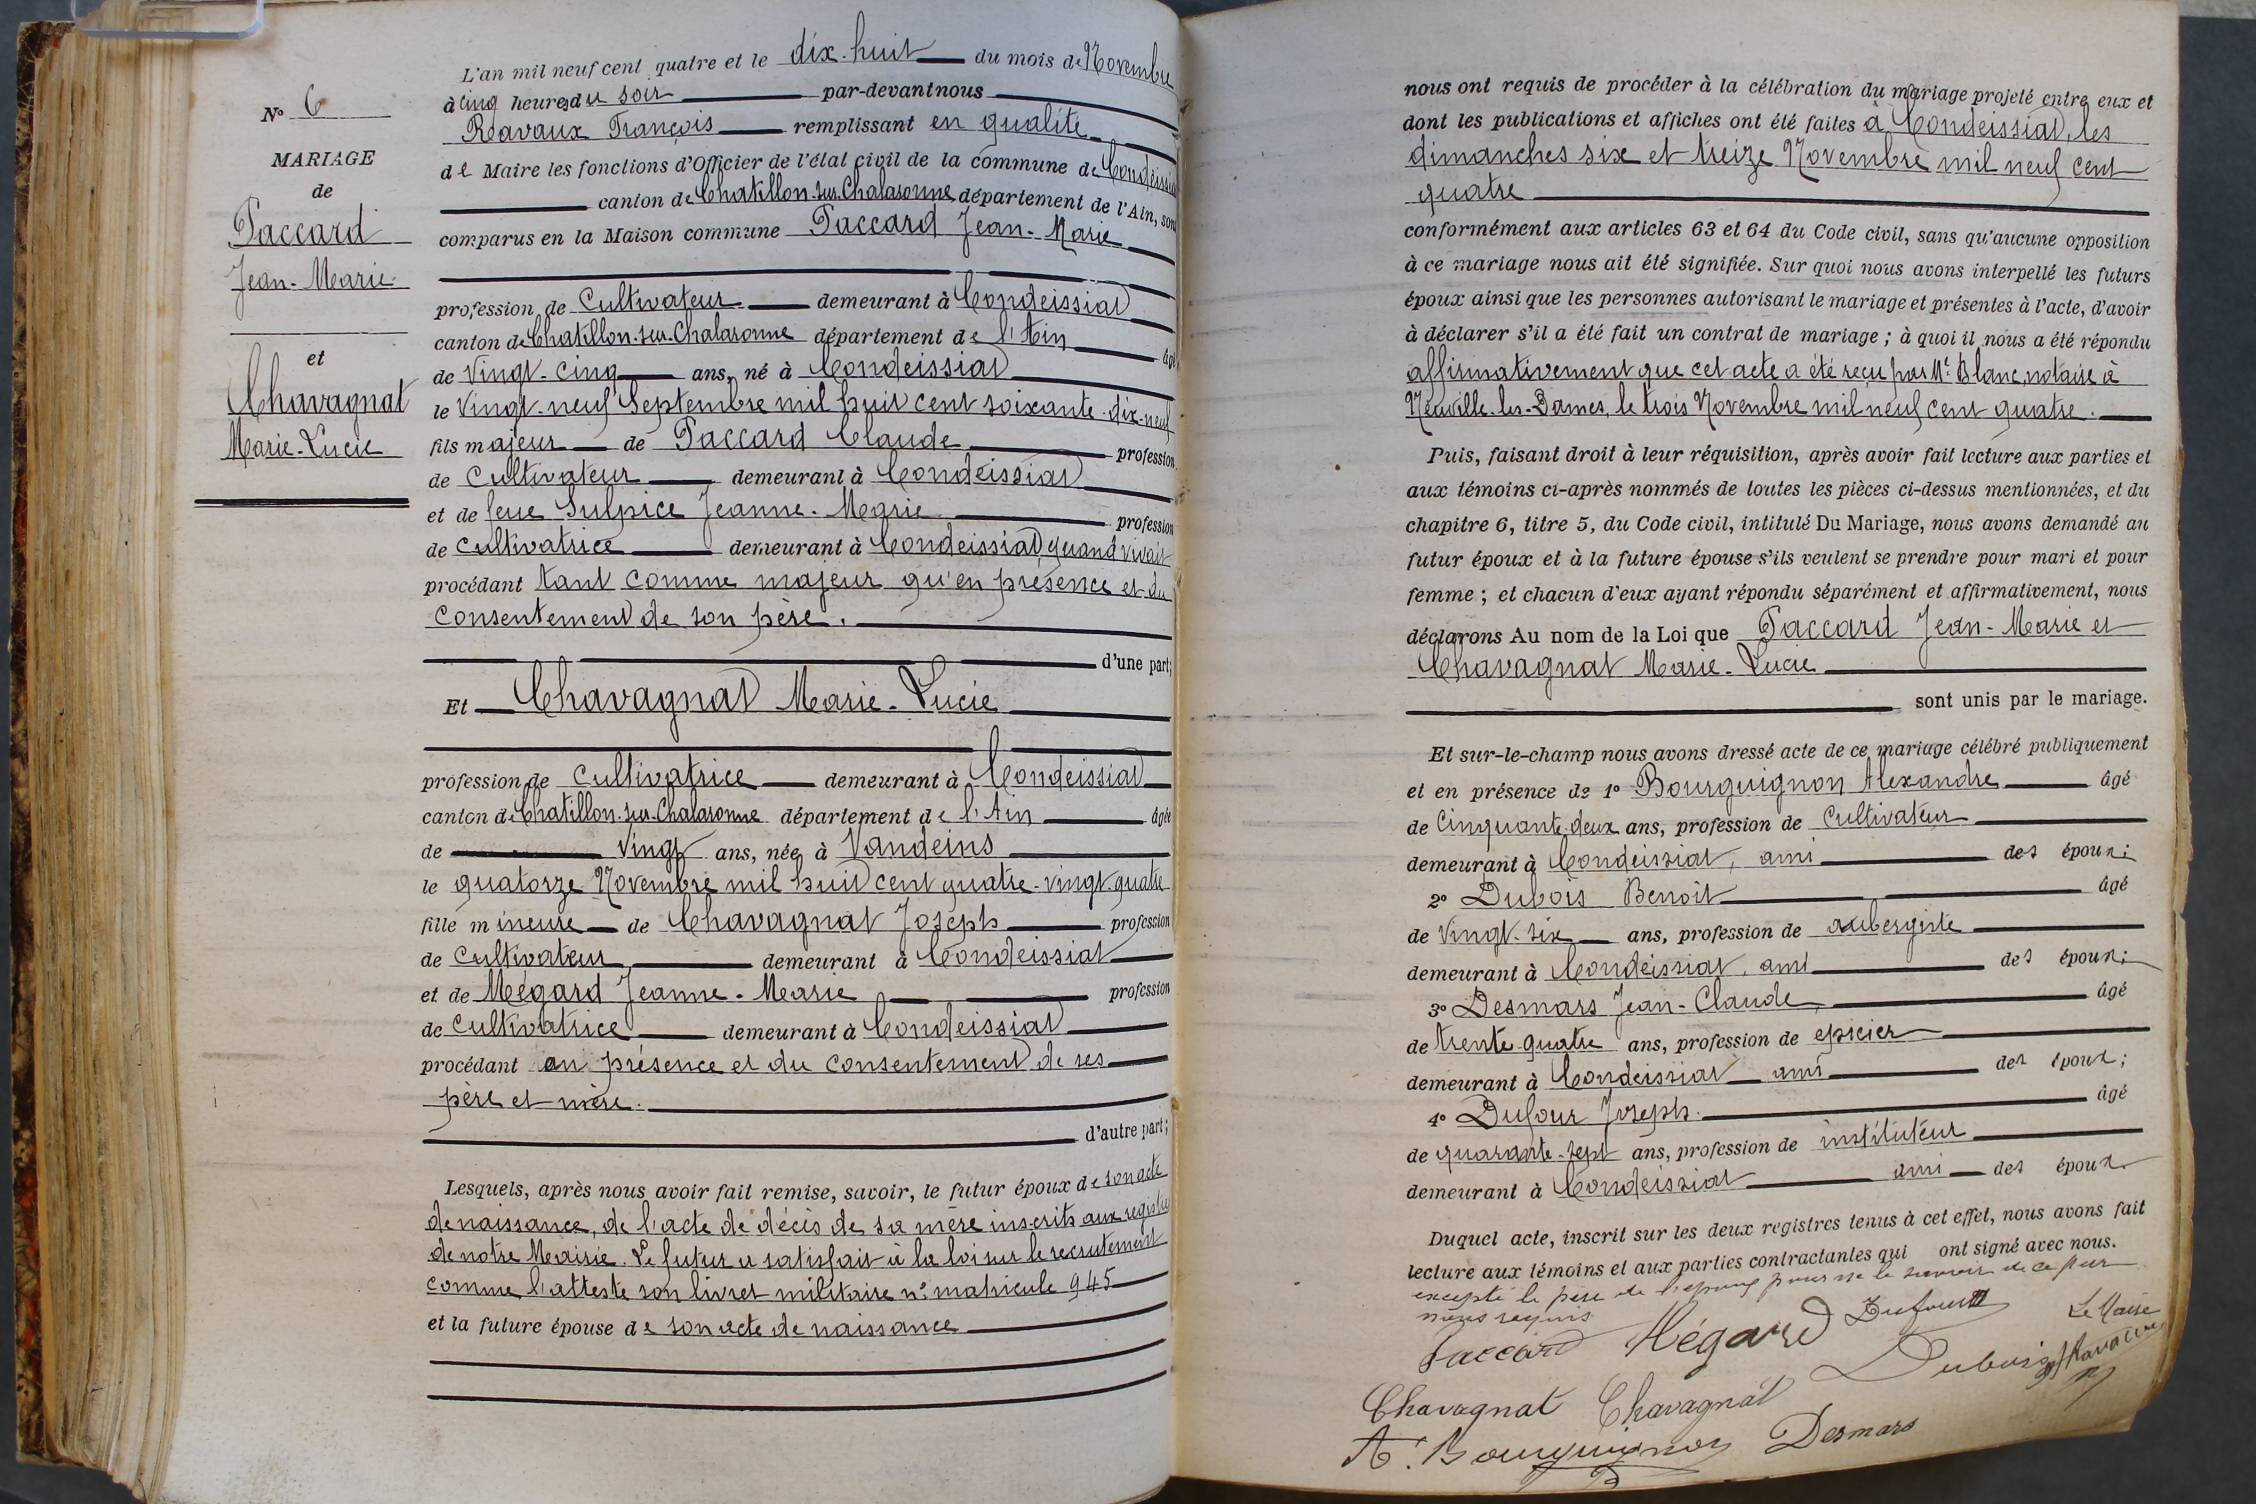 N° 6
MARIAGE
de
Paccard
Jean-Marie
et
Chavagnat
Marie-Lucie
L'an mil neuf cent quatre et le dix-huit du mois de Novembre
à cinq heures du soir par-devant nous
Ravaux François remplissant en qualité
de Maire les fonctions d'Officier de l'état civil de la commune de Condeissiat
canton de Chatillon-sur-Chalaronne département de l'Ain, sont
comparus en la Maison commune Paccard Jean-Marie
profession de Cultivateur demeurant à Condeissiat
canton de Chatillon-sur-Chalaronne département de l'Ain âgé
de Vingt-cinq ans, né à Condeissiat
le Vingt-neuf Septembre mil huit cent soixante-dix-neuf
fils majeur de Paccard Claude profession
de Cultivateur demeurant à Condeissiat
et de feue Sulpice Jeanne-Marie profession
de Cultivatrice demeurant à Condeissiat, quand vivait
procédant tant comme majeur qu'en présence et du
consentement de son père.
d'une part;
Et Chavagnat Marie-Lucie
profession de Cultivatrice demeurant à Condeissiat
canton de Chatillon-sur-Chalaronne département de l'Ain âgée
de Vingt ans, née à Vandeins
le quatorze Novembre mil huit cent quatre-vingt-quatre
fille mineure de Chavagnat Joseph profession
de Cultivateur demeurant à Condeissiat
et de Mégard Jeanne-Marie profession
de Cultivatrice demeurant à Condeissiat
procédant en présence et du consentement de ses
père et mère.
d'autre part;
Lesquels, après nous avoir fait remise, savoir, le futur époux de son acte
de naissance, de l'acte de décès de sa mère inscrits aux registres
de notre Mairie. Le futur a satisfait à la loi sur le recrutement
comme l'atteste son livret militaire n° matricule 945
et la future épouse de son acte de naissance
nous ont requis de procéder à la célébration du mariage projeté entre eux et
dont les publications et affiches ont été faites à Condeissiat, les
dimanches six et treize Novembre mil neuf cent
quatre
conformément aux articles 63 et 64 du Code civil, sans qu'aucune opposition
à ce mariage nous ait été signifiée. Sur quoi nous avons interpellé les futurs
époux ainsi que les personnes autorisant le mariage et présentes à l'acte, d'avoir
à déclarer s'il a été fait un contrat de mariage ; à quoi il nous a été répondu
affirmativement que cet acte a été reçu par Me Blanc, notaire à
Neuville-les-Dames, le trois Novembre mil neuf cent quatre.
Puis, faisant droit à leur réquisition, après avoir fait lecture aux parties et
aux témoins ci-après nommés de toutes les pièces ci-dessus mentionnées, et du
chapitre 6, titre 5, du Code civil, intitulé Du Mariage, nous avons demandé au
futur époux et à la future épouse s'ils veulent se prendre pour mari et pour
femme ; et chacun d'eux ayant répondu séparément et affirmativement, nous
déclarons Au nom de la Loi que Paccard Jean-Marie et
Chavagnat Marie-Lucie
sont unis par le mariage.
Et sur-le-champ nous avons dressé acte de ce mariage célébré publiquement
et en présence de 1° Bourguignon Alexandre âgé
de Cinquante-deux ans, profession de Cultivateur
demeurant à Condeissiat, ami des époux;
2° Dubois Benoit âgé
de Vingt-six ans, profession de aubergiste
demeurant à Condeissiat, ami des époux;
3° Desmars Jean-Claude, âgé
de trente-quatre ans, profession de épicier
demeurant à Condeissiat ami des époux;
4° Dufour Joseph. âgé
de quarante-sept ans, profession de instituteur
demeurant à Condeissiat ami des époux.
Duquel acte, inscrit sur les deux registres tenus à cet effet, nous avons fait
lecture aux témoins et aux parties contractantes qui ont signé avec nous.
excepté le père de l'époux pour ne le savoir de ce par
nous requis
Paccard Mégard Dufour Le Maire
Dubois Ravaux
Chavagnat Chavagnat
A. Bourguignon Desmars